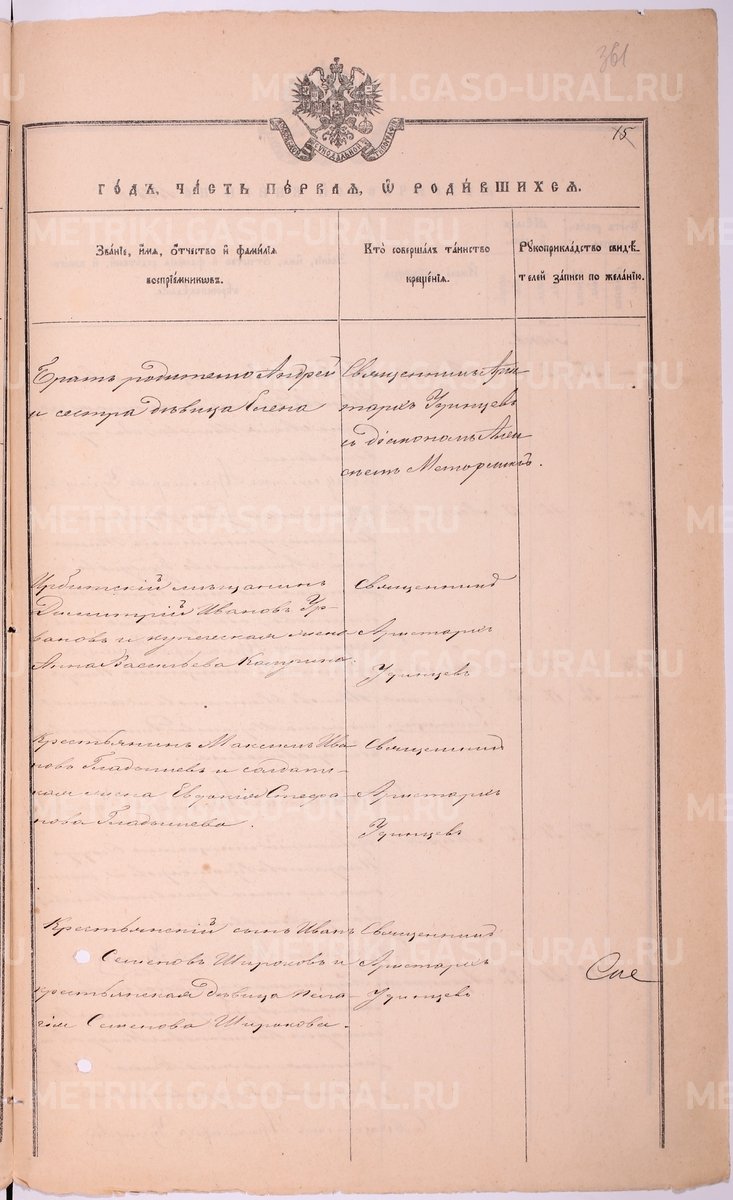 361
15
ГОДЪ, ЧАСТЬ ПЕРВАЯ, Ѡ РОДИВШИХСЯ.
Званіе, имя, отчество и фамилія
воспріемниковъ.
Кто совершалъ таинство
крещенія.
Рукоприкладство свидѣ-
телей записи по желанію.
Братъ родителя Андрей
и сестра дѣвица Елена
Священникъ Ари-
тархъ Удинцевъ
и діакономъ Алек-
сѣемъ
Ирбитскій мѣщанинъ
Димитрій Ивановъ Ур-
вановъ и купеческая жена
Анна Васильева
Священникъ
Аристархъ
Удинцевъ
Крестьянинъ Максимъ Ива-
новъ Гладышевъ и солдат-
кая жена Евдокія Стефа-
нова Гладышева.
Священникъ
Аристархъ
Удинцевъ
Крестьянскій сынъ Иванъ
Семеновъ Широковъ и
крестьянская дѣвица Пела-
гія Семенова Широкова.
Священникъ
Аристархъ
Удинцевъ
METRIKI.GASO-URAL.RU